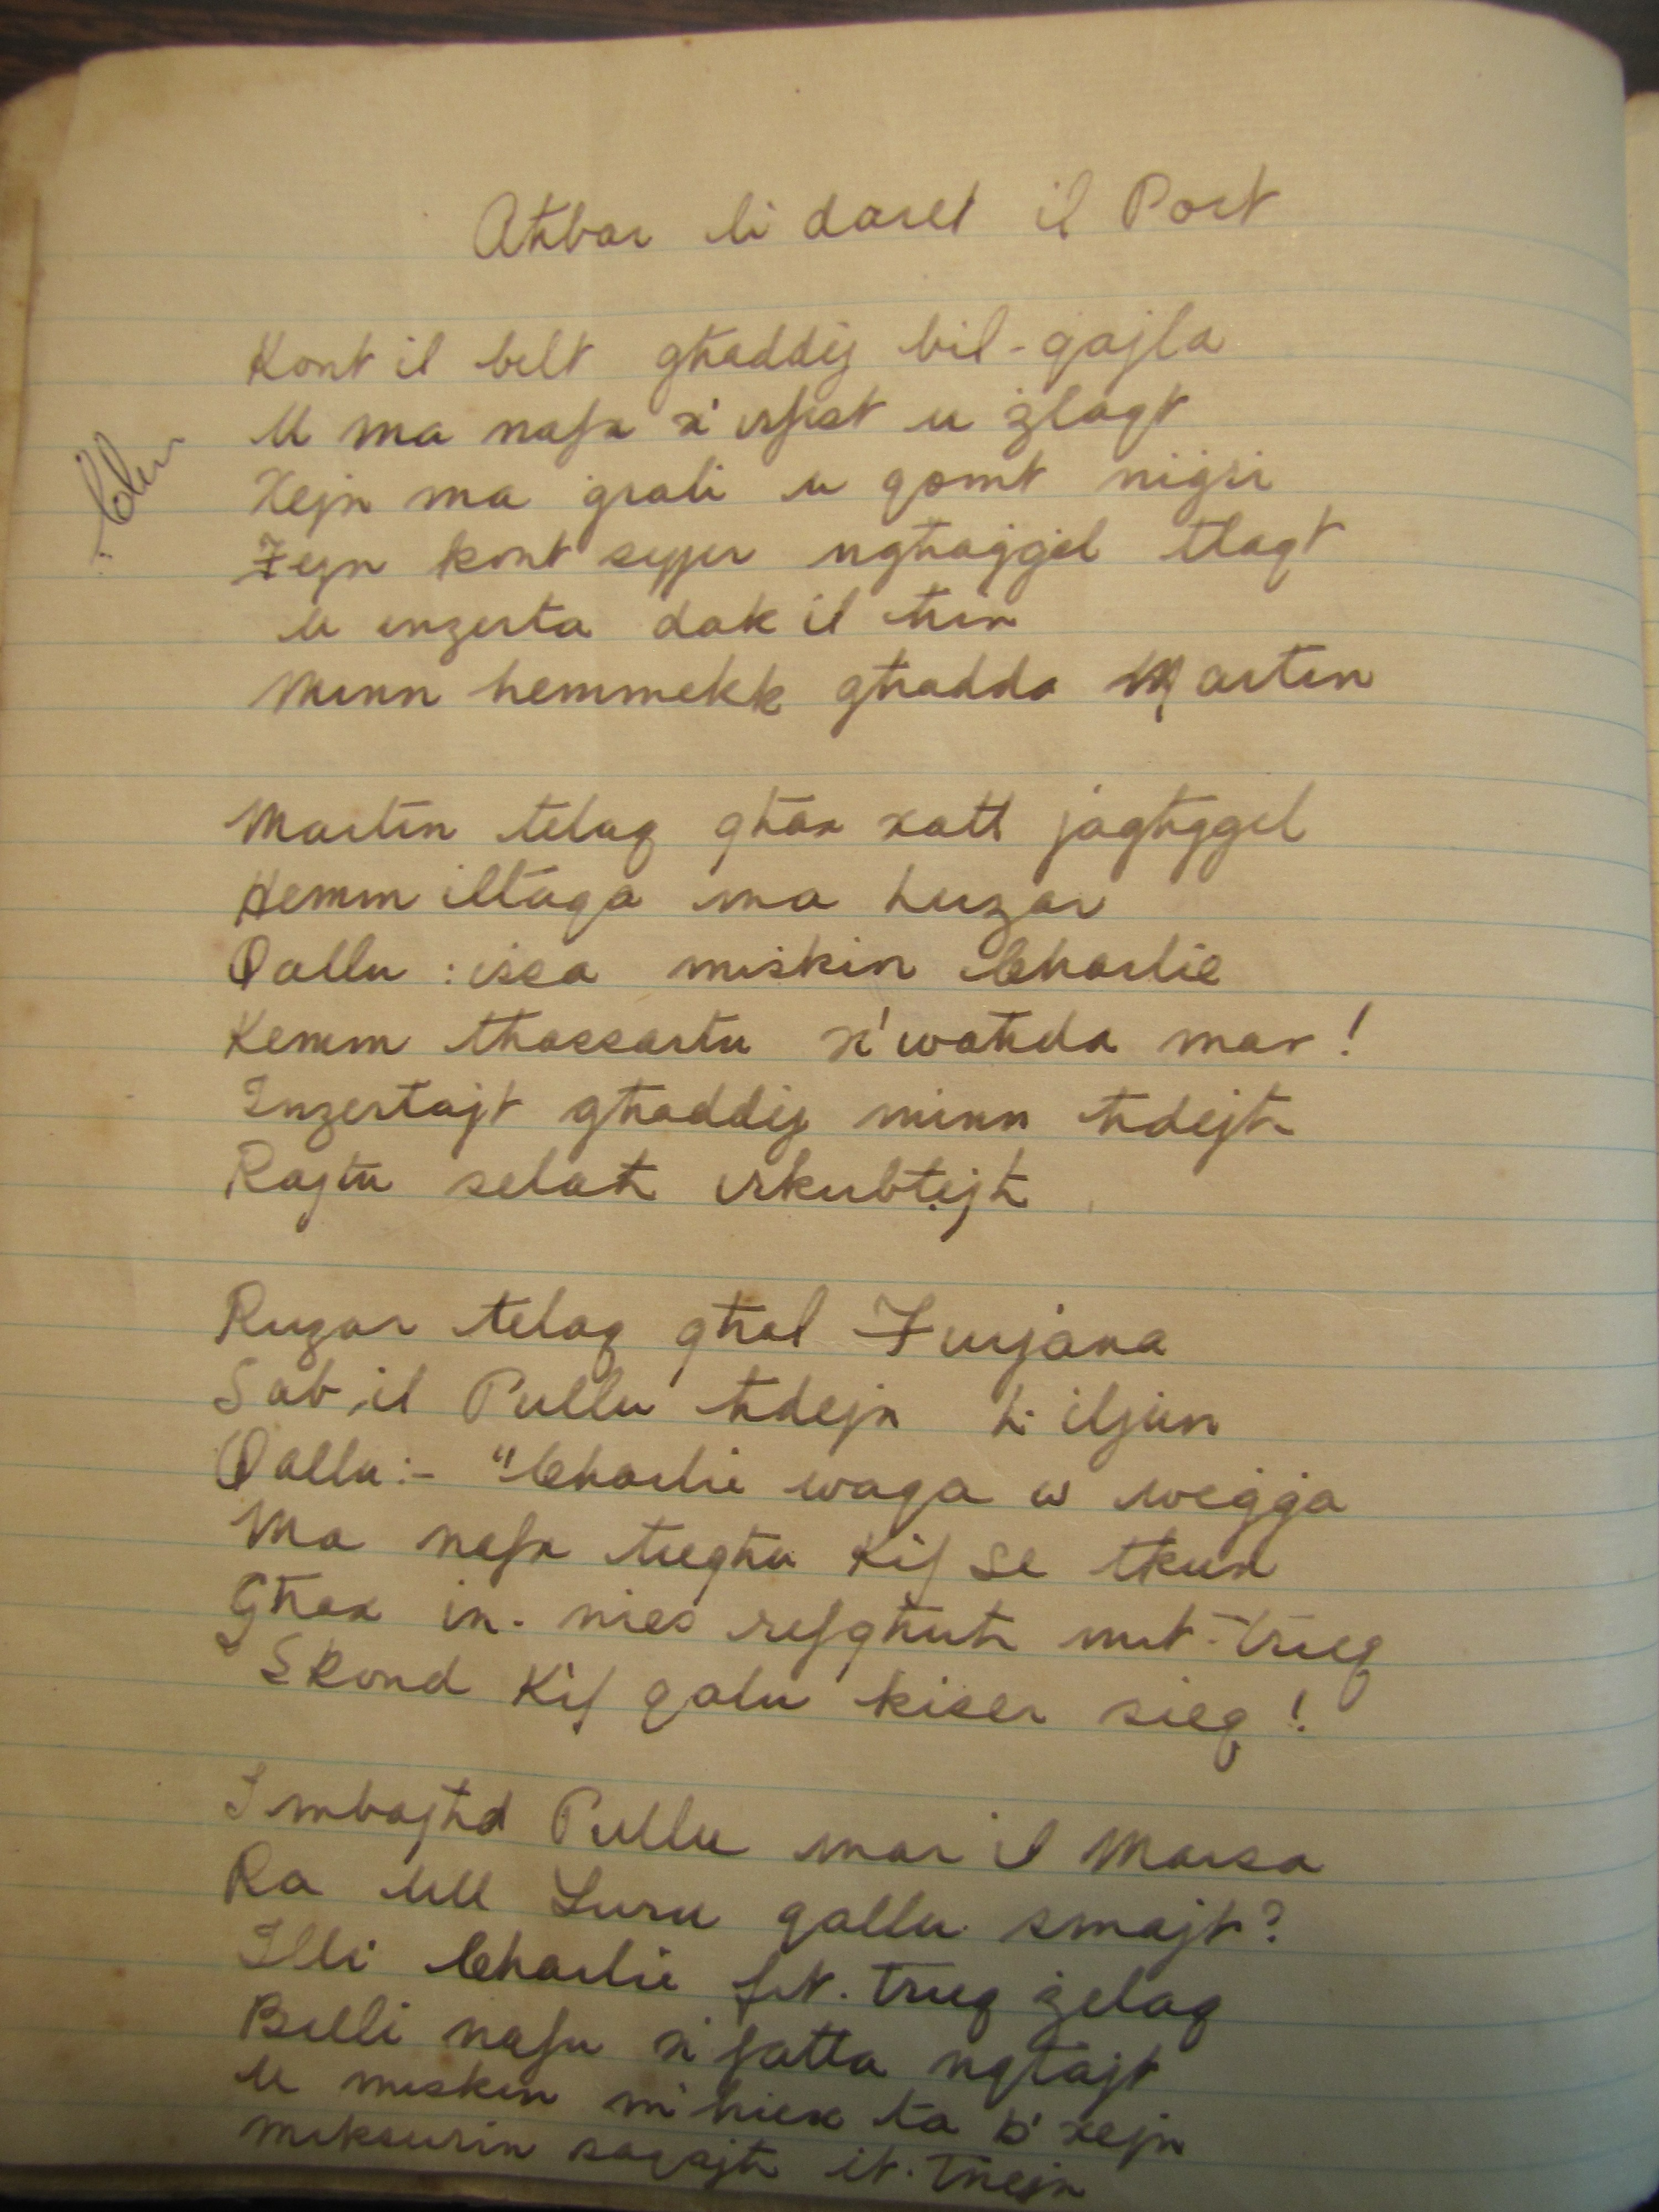 Aħbar li daret il Port
Kont il belt għaddej bil-qajla
U ma nafx x'irfist u żlaqt
Xejn ma ġrali u qomt niġri
Ħejn kont sejjer ngħaġġel tlaqt
U inzerta dak il ħin
Minn hemmekk għadda Martin
Martin telaq għax xatt jagħġġel
Hemm iltaqa ma Luzar
Qallu : issa miskin Charlie
Kemm tħassartu x'waħda mar!
Inzertajt għaddej minn ħdejh
Rajtu selaħ irkubtejh
Ruzar telaq għal Furjana
Sab il Pullu ħdejn l-iljun
Qallu:- "Charlie waqa w weġġa
Ma nafx tiegħu Kif se tkun
Għax in-nies refgħuh mit-triq
Skond Kif qalu kiser sieq!
Imbagħd Pullu mar il Marsa
Ra lill Luru qallu smajt?
Illi Charlie fit-Triq żelaq
Billi nafu x'ħatta nqtajt
U miskin m'hiex ta b'xejn
miksurin saqajh it-Tnejn